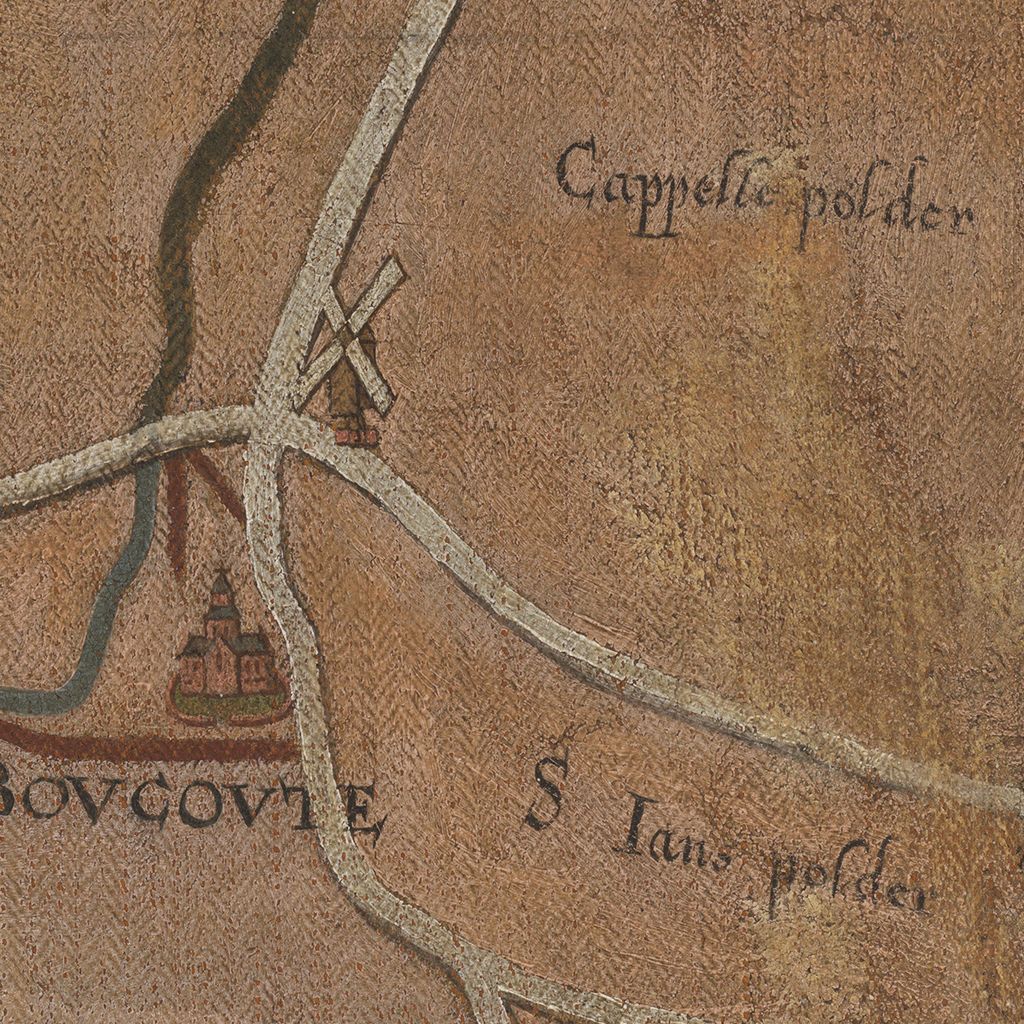 Cappelle polder
BOVCOVTE
S Ians polder